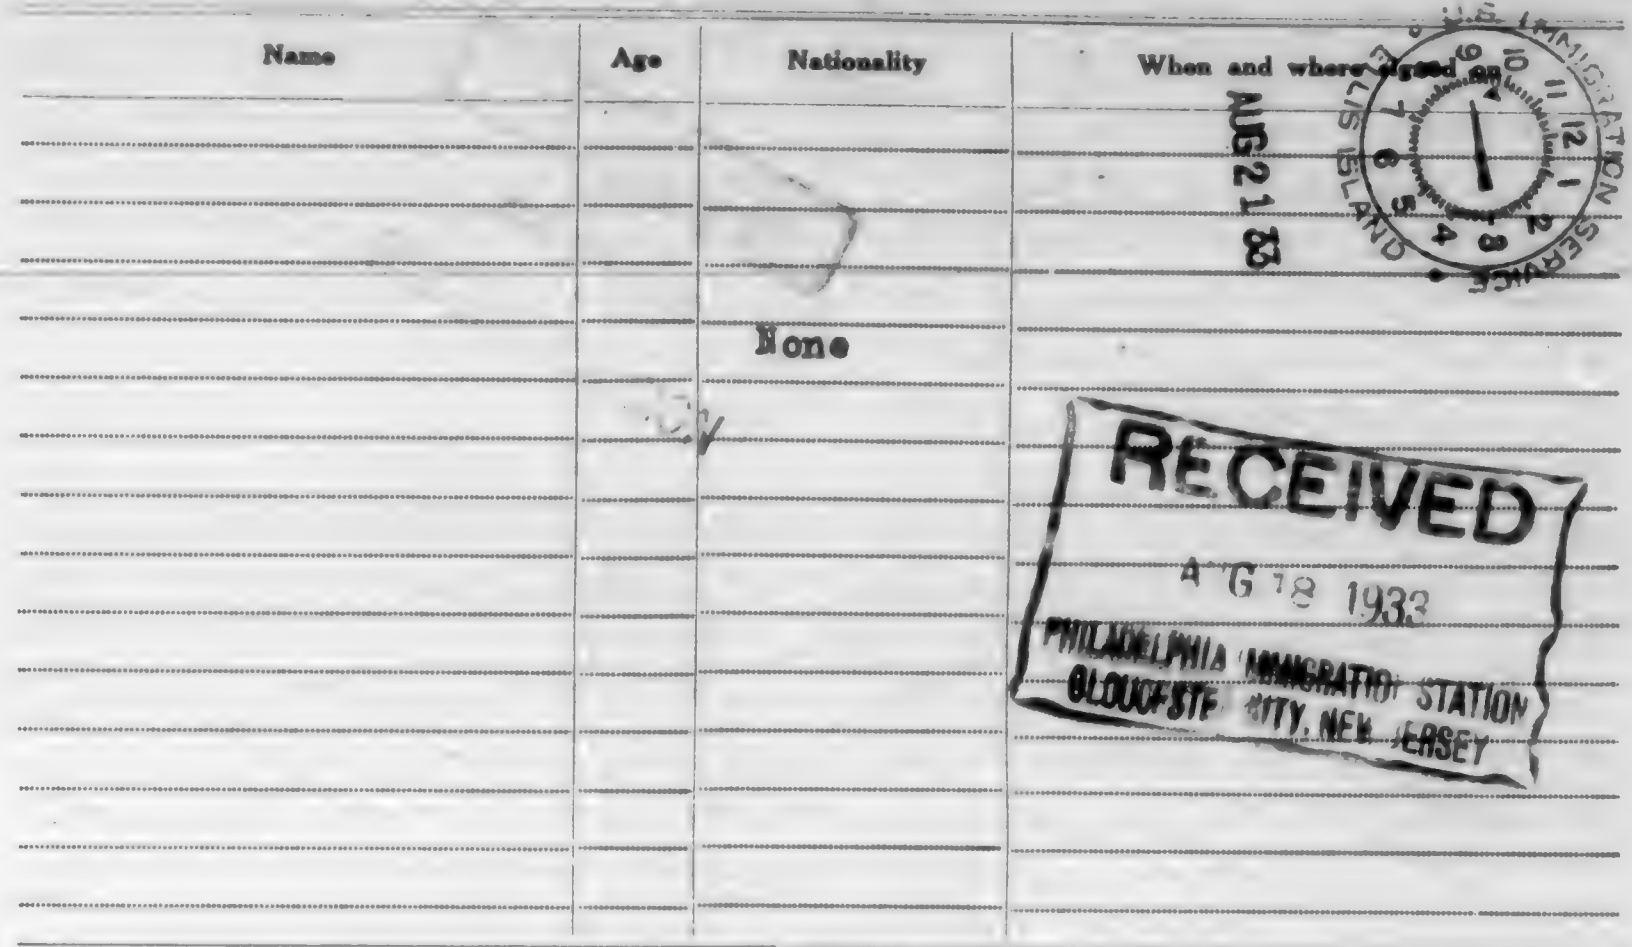 Name Age Nationality When and where signed on
U.S. IMMIGRATION SERVICE
ELLIS ISLAND
9 10 11 12 1 2 3 4 5 6 7
AUG 21 33
None
RECEIVED
A G 18 1933
PHILADELPHIA IMMIGRATIO STATION
GLOUCESTE CITY, NEW JERSEY